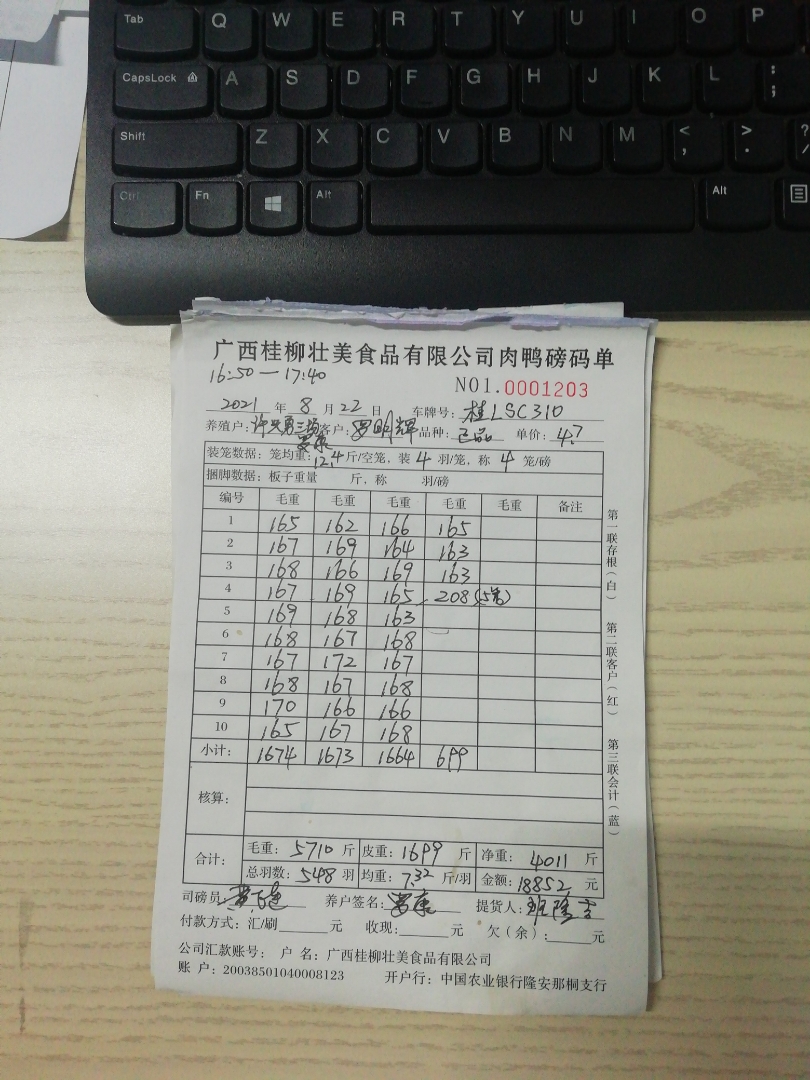 Tab Q W E R T Y U I O P
CapsLock A S D F G H J K L : ;
Shift Z X C V B N M < , > . ? /
Ctrl Fn Alt Alt
广西桂柳壮美食品有限公司肉鸭磅码单
16:50—17:40
NO1.0001203
2021 年 8 月 22 日 车牌号: 桂LSC310
养殖户: 客户: 罗明辉 品种: 单价: 4.7
装笼数据: 笼均重: 12.4 斤/空笼, 装 4 羽/笼, 称 4 笼/磅
捆脚数据: 板子重量 斤, 称 羽/磅
编号 毛重 毛重 毛重 毛重 毛重 备注
1 165 162 166 165
2 167 169 164 163
3 168 166 169 163
4 167 169 165 208(5笼)
5 169 168 163
6 168 167 168
7 167 172 167
8 168 167 168
9 170 166 166
10 165 167 168
小计: 1674 1673 1664 699
核算:
合计: 毛重: 5710 斤 皮重: 1699 斤 净重: 4011 斤
总羽数: 548 羽 均重: 7.32 斤/羽 金额: 18852 元
司磅员: 养户签名: 提货人:
付款方式: 汇/刷 元 收现: 元 欠(余): 元
公司汇款账号: 户 名: 广西桂柳壮美食品有限公司
账 户: 20038501040008123 开户行: 中国农业银行隆安那桐支行
第一联存根(白) 第二联客户(红) 第三联会计(蓝)